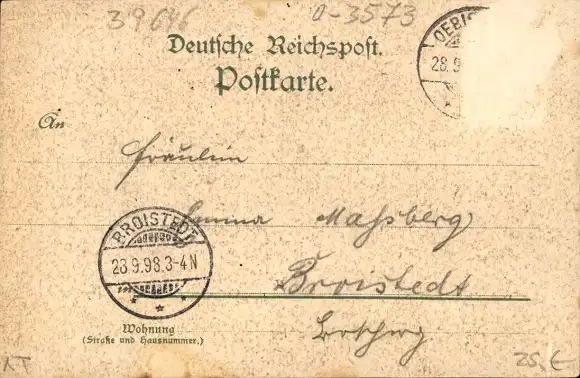 39646
0-3573
Deutsche Reichspost.
Postkarte.
OEBIS
28.9
An
Fräulein
Emma Maßberg
BROISTEDT
28.9.98.3-4N
Broistedt
Wohnung
(Straße und Hausnummer.)
KT
25,€